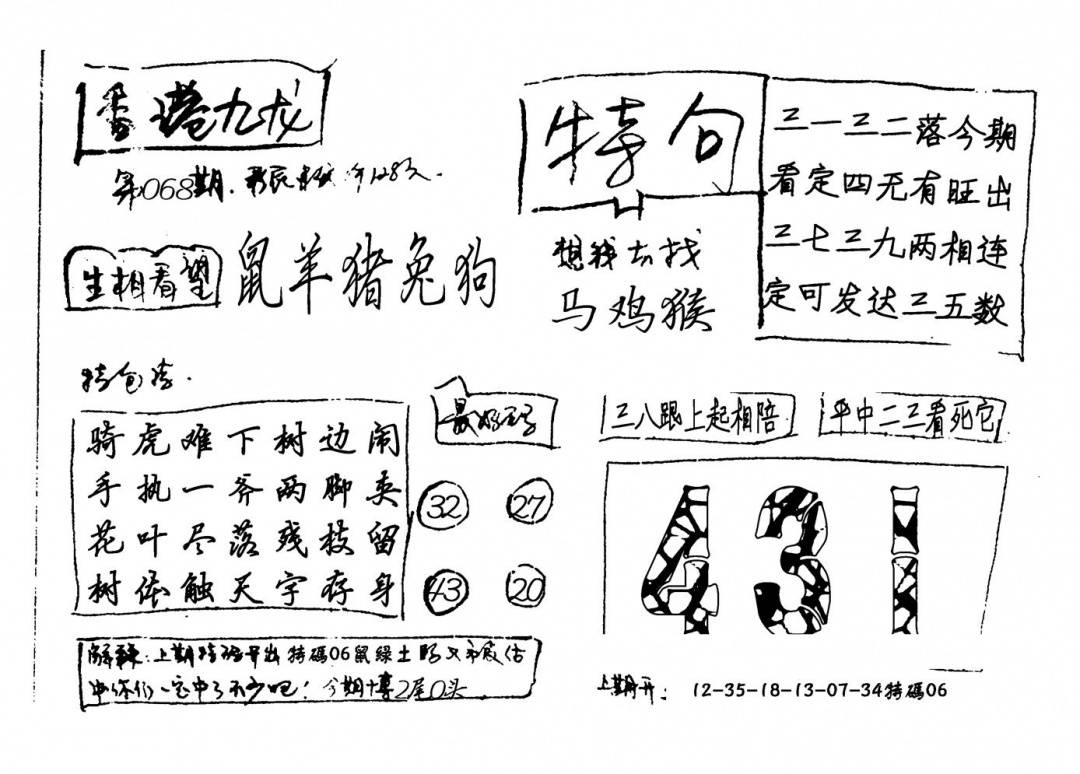 香港九龙
第068期
生相看望
鼠羊猪兔狗
特句
想我去找
马鸡猴
三一三二落今期
看定四无有旺出
三七三九两相连
定可发达三五数
特包
骑虎难下树边闹
手执一斧两脚夹
花叶尽落残枝留
树体触天字存身
最好
32
27
43
20
三八跟上起相陪
平中二三看死它
431
解释:上期特码开出特碼06鼠綠土
中你们一定中了不少吧!今期博2尾0头
上期开: 12-35-18-13-07-34特碼06